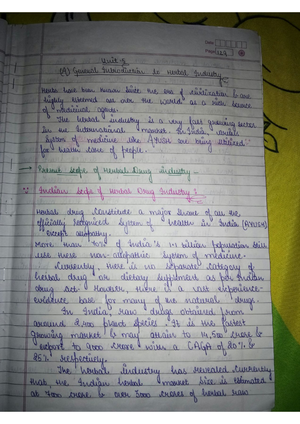 Date
Page
Unit-5
(A) General Introduction to Herbal Industry
Herbs have been known since the era of civilization & are
highly esteemed all over the world as a rich source
of medicinal agents.
The herbal industry is a very fast growing sector
in the International market. In India, various
system of medicine like AYUSH are being utilized
for health care of people.
Present scope of Herbal Drug industry -
Indian Scope of Herbal Drug Industry :
Herbal drug constitute a major share of all the
officially recognized system of health in India (AYUSH)
except allopathy.
More than 70% of India's 1.1 billion population still
use these non-allopathic system of medicine.
Currently, there is no separate category of
herbal drug or dietary supplement as per Indian
drug act. However, there is a vast experience-
evidence base for many of the natural drugs.
In India, raw drugs obtained from
around 2400 plant species. It is the fastest
growing market & may attain to 14,500 crore &
export to 9000 crore with a CAGR of 20% &
25% respectively.
The herbal industry has revealed currently
that, the Indian herbal market size is estimated
at 7000 crore & over 3000 crores of herbal raw